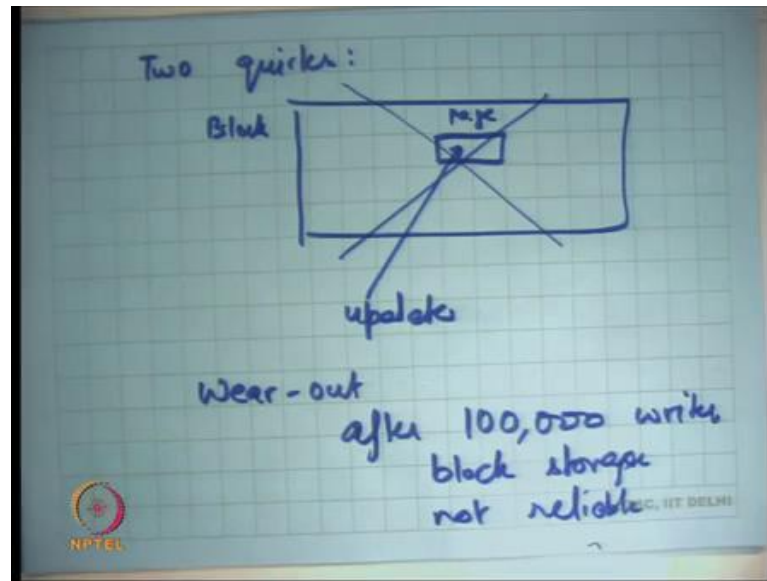 Two quirks:
Block
page
updates
Wear-out
after 100,000 writes
block storage
not reliable
NPTEL
IIT DELHI